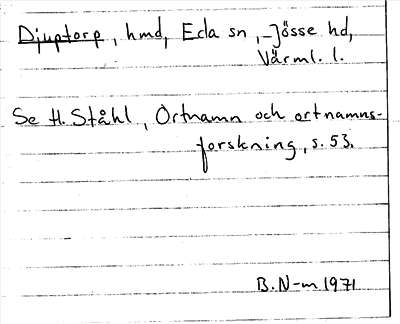 Djuptorp, hmd, Eda sn, Jösse hd,
Värml. l.
Se H. Ståhl, Ortnamn och ortnamns-
forskning, s. 53.
B. N-m 1971